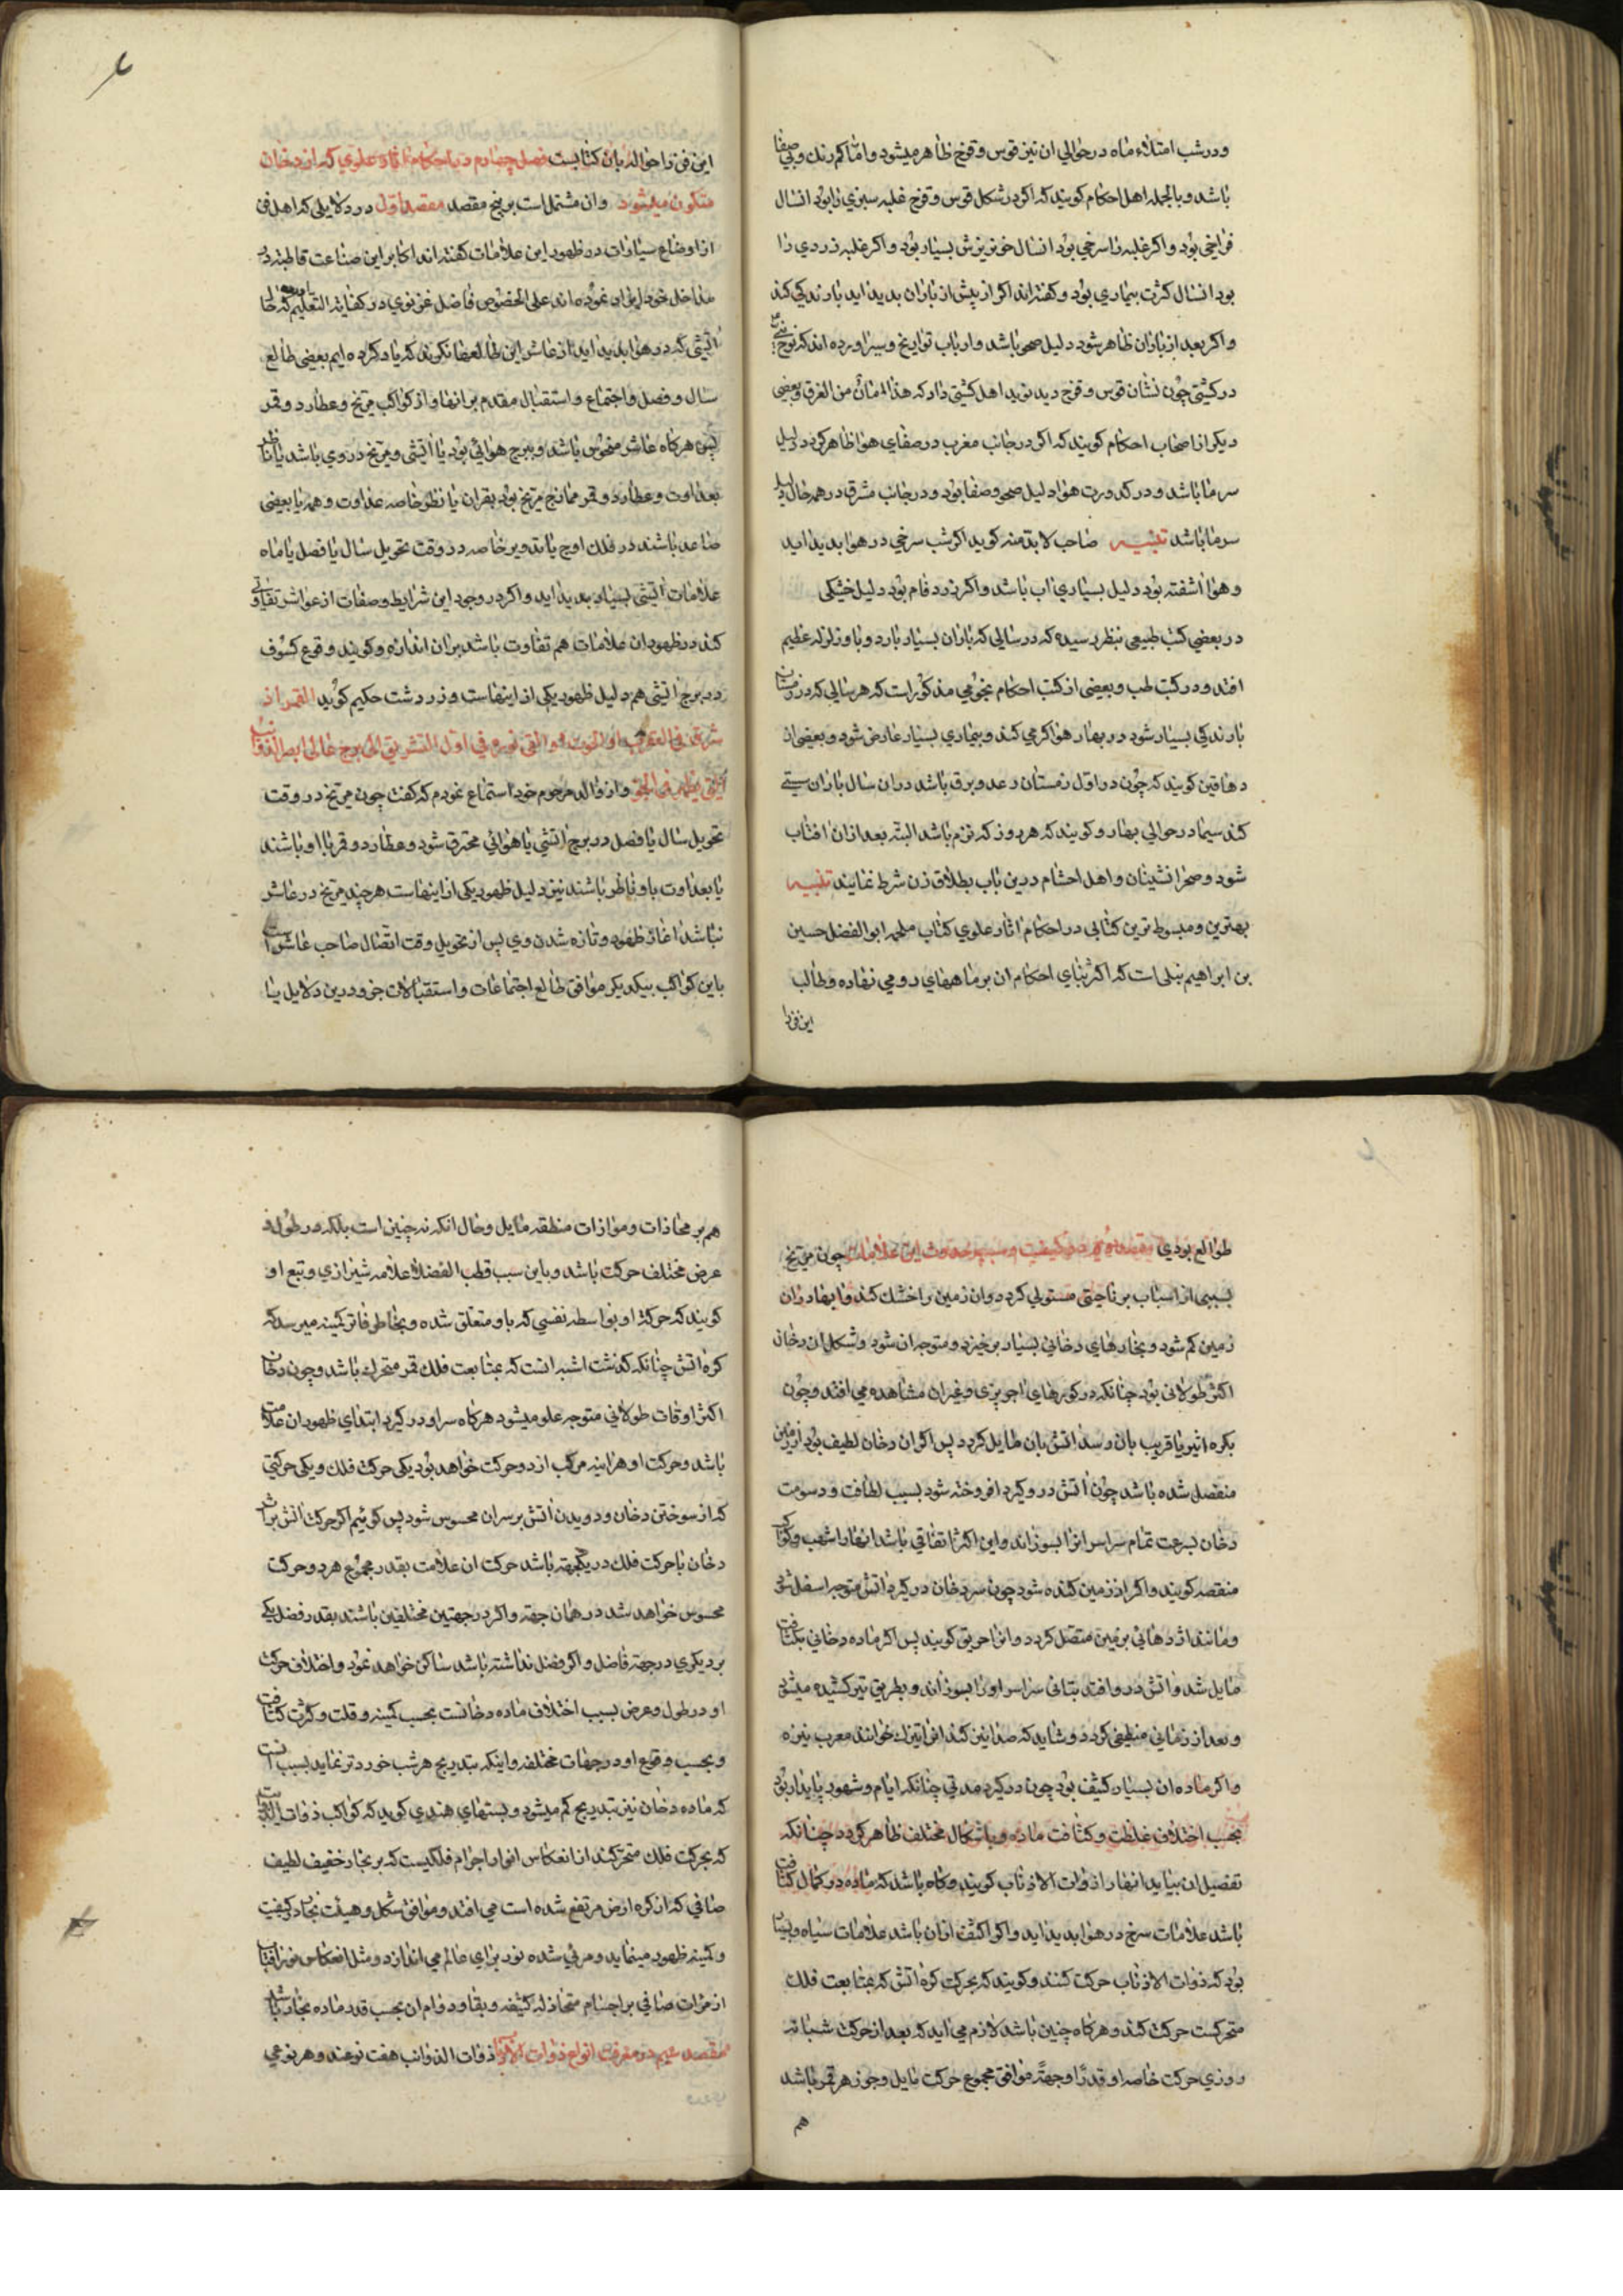 ودر شب امتلاء ماه در حوالی ان نیز قوس و قزح ظاهر میشود و اما کم رنك وبی صفا
باشد و بالجمله اهل احکام کویند که اکر در شکل قوس و قزح غلبه سبزی را بود انسال
فراخی بود و اکر غلبه را سرخی بود انسال خونریزش بسیار بود و اکر غلبه زردی را
بود انسال کثرت بیماری بود و کفته اند اکر از پیش از باران بدید اید بارندکی کند
و اکر بعد از باران ظاهر شود دلیل صحو باشد و ارباب تواریخ و سیر اورده اند که نوح نبی
در کشتی چون نشان قوس و قزح دید نوید اهل کشتی داد که هذا امان من الغرق و بعضی
دیکر از اصحاب احکام کویند که اکر در جانب مغرب در صفای هوا ظاهر کردد دلیل
سرما باشد و در کدورت هوا دلیل صحو و صفا بود و در جانب مشرق در همه حال دلیل
سرما باشد تنبیه صاحب لابد منه کوید اکر شب سرخی در هوا بدید اید
و هوا اشفته بود دلیل بسیاری اب باشد و اکر زرد فام بود دلیل خشکی
در بعضی کتب طبیعی بنظر رسیده که در سالی که باران بسیار بارد و با و زلزله عظیم
افتد و در کتب طب و بعضی از کتب احکام نجومی مذکور است که هر سالی که در زمستان
بارندکی بسیار شود در بهار هوا کرمی کند و بیماری بسیار عارض شود و بعضی از
دهاقین کویند که چون در اول زمستان رعد و برق باشد دران سال باران سستی
کند سیما در حوالی بهار و کویند که هر روز که نزم باشد البته بعد ازان افتاب
شود و صحرا نشینان و اهل احشام درین باب بطلاق زن شرط نمایند تنبیه
بهترین و مبسوط ترین کتابی در احکام اثار علوی کتاب ملحمه ابو الفضل حسین
بن ابراهیم تبلی است که اکثر بنای احکام ان بر ماههای رومی نهاده و طالب
این فن را
این فن را حواله بان کتابست فصل چهارم در احکام اثار علوی که از دخان
متکون میشود وان مشتمل است بر پنج مقصد مقصد اول در دلایلی که اهل فن
از اوضاع سیارات در ظهور این علامات کفته اند اکابر این صناعت قاطبه در
مداخل خود ایراد نموده اند علی الخصوص فاضل غزنوی در کفایة التعلیم که
اتشی که در هوا بدید اید از عاشر این طالعها نکرند که یاد کرده ایم بعضی طالع
سال و فصل و اجتماع و استقبال مقدم بر انها و از کواکب مریخ و عطارد و قمر
پس هرکاه عاشر منحوس باشد و ببرج هوائی بود یا اتشی و مریخ در وی باشد یا ناظر
بعداوت و عطارد و قمر ممازج مریخ بود بقران یا نظر خاصه عداوت و همه یا بعضی
صاعد باشند در فلك اوج یا تدویر خاصه در وقت تحویل سال یا فصل یا ماه
علامات اتشی بسیار بدید اید و اکر در وجود این شرایط و صفات از عواشر تفاوتی
کند در ظهور ان علامات هم تفاوت باشد بران اندازه و کویند وقوع کسوف
در برج اتشی هم دلیل ظهور یکی از اینهاست و زردشت حکیم کوید القمر اذ
شرق فی العقرب او الحوت و القی نوره فی اول التشریق الی برج عالی
یظهر فی الجو و از والد مرحوم خود استماع نمودم که کفت چون مریخ در وقت
تحویل سال یا فصل در برج اتشی یا هوائی محترق شود و عطارد و قمر با او باشند
یا بعداوت باو ناظر باشند نیز دلیل ظهور یکی از اینهاست هرچند مریخ در عاشر
نباشد اغاز ظهور و تازه شدن وی پس از تحویل وقت اتصال صاحب عاشر است
باین کواکب بیکدیکر موافق طالع اجتماعات و استقبالات جزو درین دلایل بنا
طوالع بودی مقصد دوم در کیفیت و سبب حدوث این علامات چون مریخ
بسببی از اسباب بر ناحیتی مستولی کردد وان زمین را خشك کند و ابهاء دران
زمین کم شود و بخارهای دخانی بسیار برخیزد و متوجه ان شود و شکل ان دخان
اکثر طولانی بود چنانکه در کورهای اجوپزی و غیران مشاهده می افتد و چون
بکره اثیر یا قریب بان رسد اتش بان مایل کردد پس اکر ان دخان لطیف بود از زمین
منفصل شده باشد چون اتش در و کیرد افروخته شود بسبب لطافت و دسومت
دخان بسرعت تمام سراسر انرا بسوزاند و این اکثر اتفاقی باشد انها را شهب و کواکب
منقضه کویند و اکر از زمین کنده شود چون سر دخان در کیرد اتش متوجه اسفل شود
و مانند اژدهائی بزمین متصل کردد و انرا حریق کویند پس اکر ماده دخانی بکثافت
مایل شد و اتش در و افتد بتانی سراسر او را بسوزاند و بطریق تیر کشیده میشود
و بعد از زمانی منطفی کردد و شاید که صدا نیز کند انرا تیرك خوانند معرب نیزه
و اکر ماده ان بسیار کثیف بود چون در کیرد مدتی چنانکه ایام و شهور پایدار بود
بحسب اختلاف غلظت و کثافت ماده و باشکال مختلف ظاهر کردد چنانکه
تفصیل ان بیاید انها را ذوات الاذناب کویند و کاه باشد که ماده در کمال کثافت
باشد علامات سرخ در هوا بدید اید و اکر اکثف ازان باشد علامات سیاه و
بود که ذوات الاذناب حرکت کنند و کویند که بحرکت کره اتش که بمتابعت فلك
متحرکست حرکت کند و هرکاه چنین باشد لازم می اید که بعد از حرکت شبانه
روزی حرکت خاصه او قدرًا و جهةً موافق مجموع حرکت مایل و جوزهر قمر باشد
هم
هم بر محاذات و موازات منطقه مایل و حال انکه نه چنین است بلکه در طول و
عرض مختلف حرکت باشد و باین سبب قطب الفضلا علامه شیرازی و تبع او
کویند که حرکت او بواسطه نفسی که باو متعلق شده و بخاطر فاتر کمینه میرسد که
کره اتش چنانکه کذشت اشبه انست که بمتابعت فلك قمر متحرك باشد و چون دخان
اکثر اوقات طولانی متوجه علو میشود هرکاه سر او در کیرد ابتدای ظهور ان علامت
باشد و حرکت او هراینه مرکب از دو حرکت خواهد بود یکی حرکت فلك و یکی حرکتی
که از سوختن دخان و دویدن اتش بر سران محسوس شود پس کوئیم اکر حرکت اتش بران
دخان با حرکت فلك در یکجهته باشد حرکت ان علامت بقدر مجموع هر دو حرکت
محسوس خواهد شد در همان جهة و اکر در جهتین مختلفین باشند بقدر فضل یکی
بر دیکری در جهة فاضل و اکر فضل نداشته باشد ساکن خواهد نمود و اختلاف حرکت
او در طول و عرض بسبب اختلاف ماده دخانست بحسب کمیت و قلت و کثرت کثافت
و بحسب وقوع او در جهات مختلفه و اینکه بتدریج هر شب خوردتر نماید بسبب انست
که ماده دخان نیز بتدریج کم میشود و بستهای هندی کوید که کواکب ذوات الذوایب
که بحرکت فلك متحرکند از انعکاس انوار اجرام فلکیست که بر بخار خفیف لطیف
صافی که از کره ارض مرتفع شده است می افتد و موافق شکل و هیئت بخار و کیفیت
و کمیت ظهور مینماید و مرئی شده نور برای عالم می اندازد و مثل انعکاس نور افتاب
از مرات صافی بر اجسام متحاذیه کثیفه و بقا و دوام ان بحسب قدر ماده بخار باشد
مقصد سیم در معرفت انواع ذوات الاذناب ذوات الذوائب هفت نوعند و هر نوعی